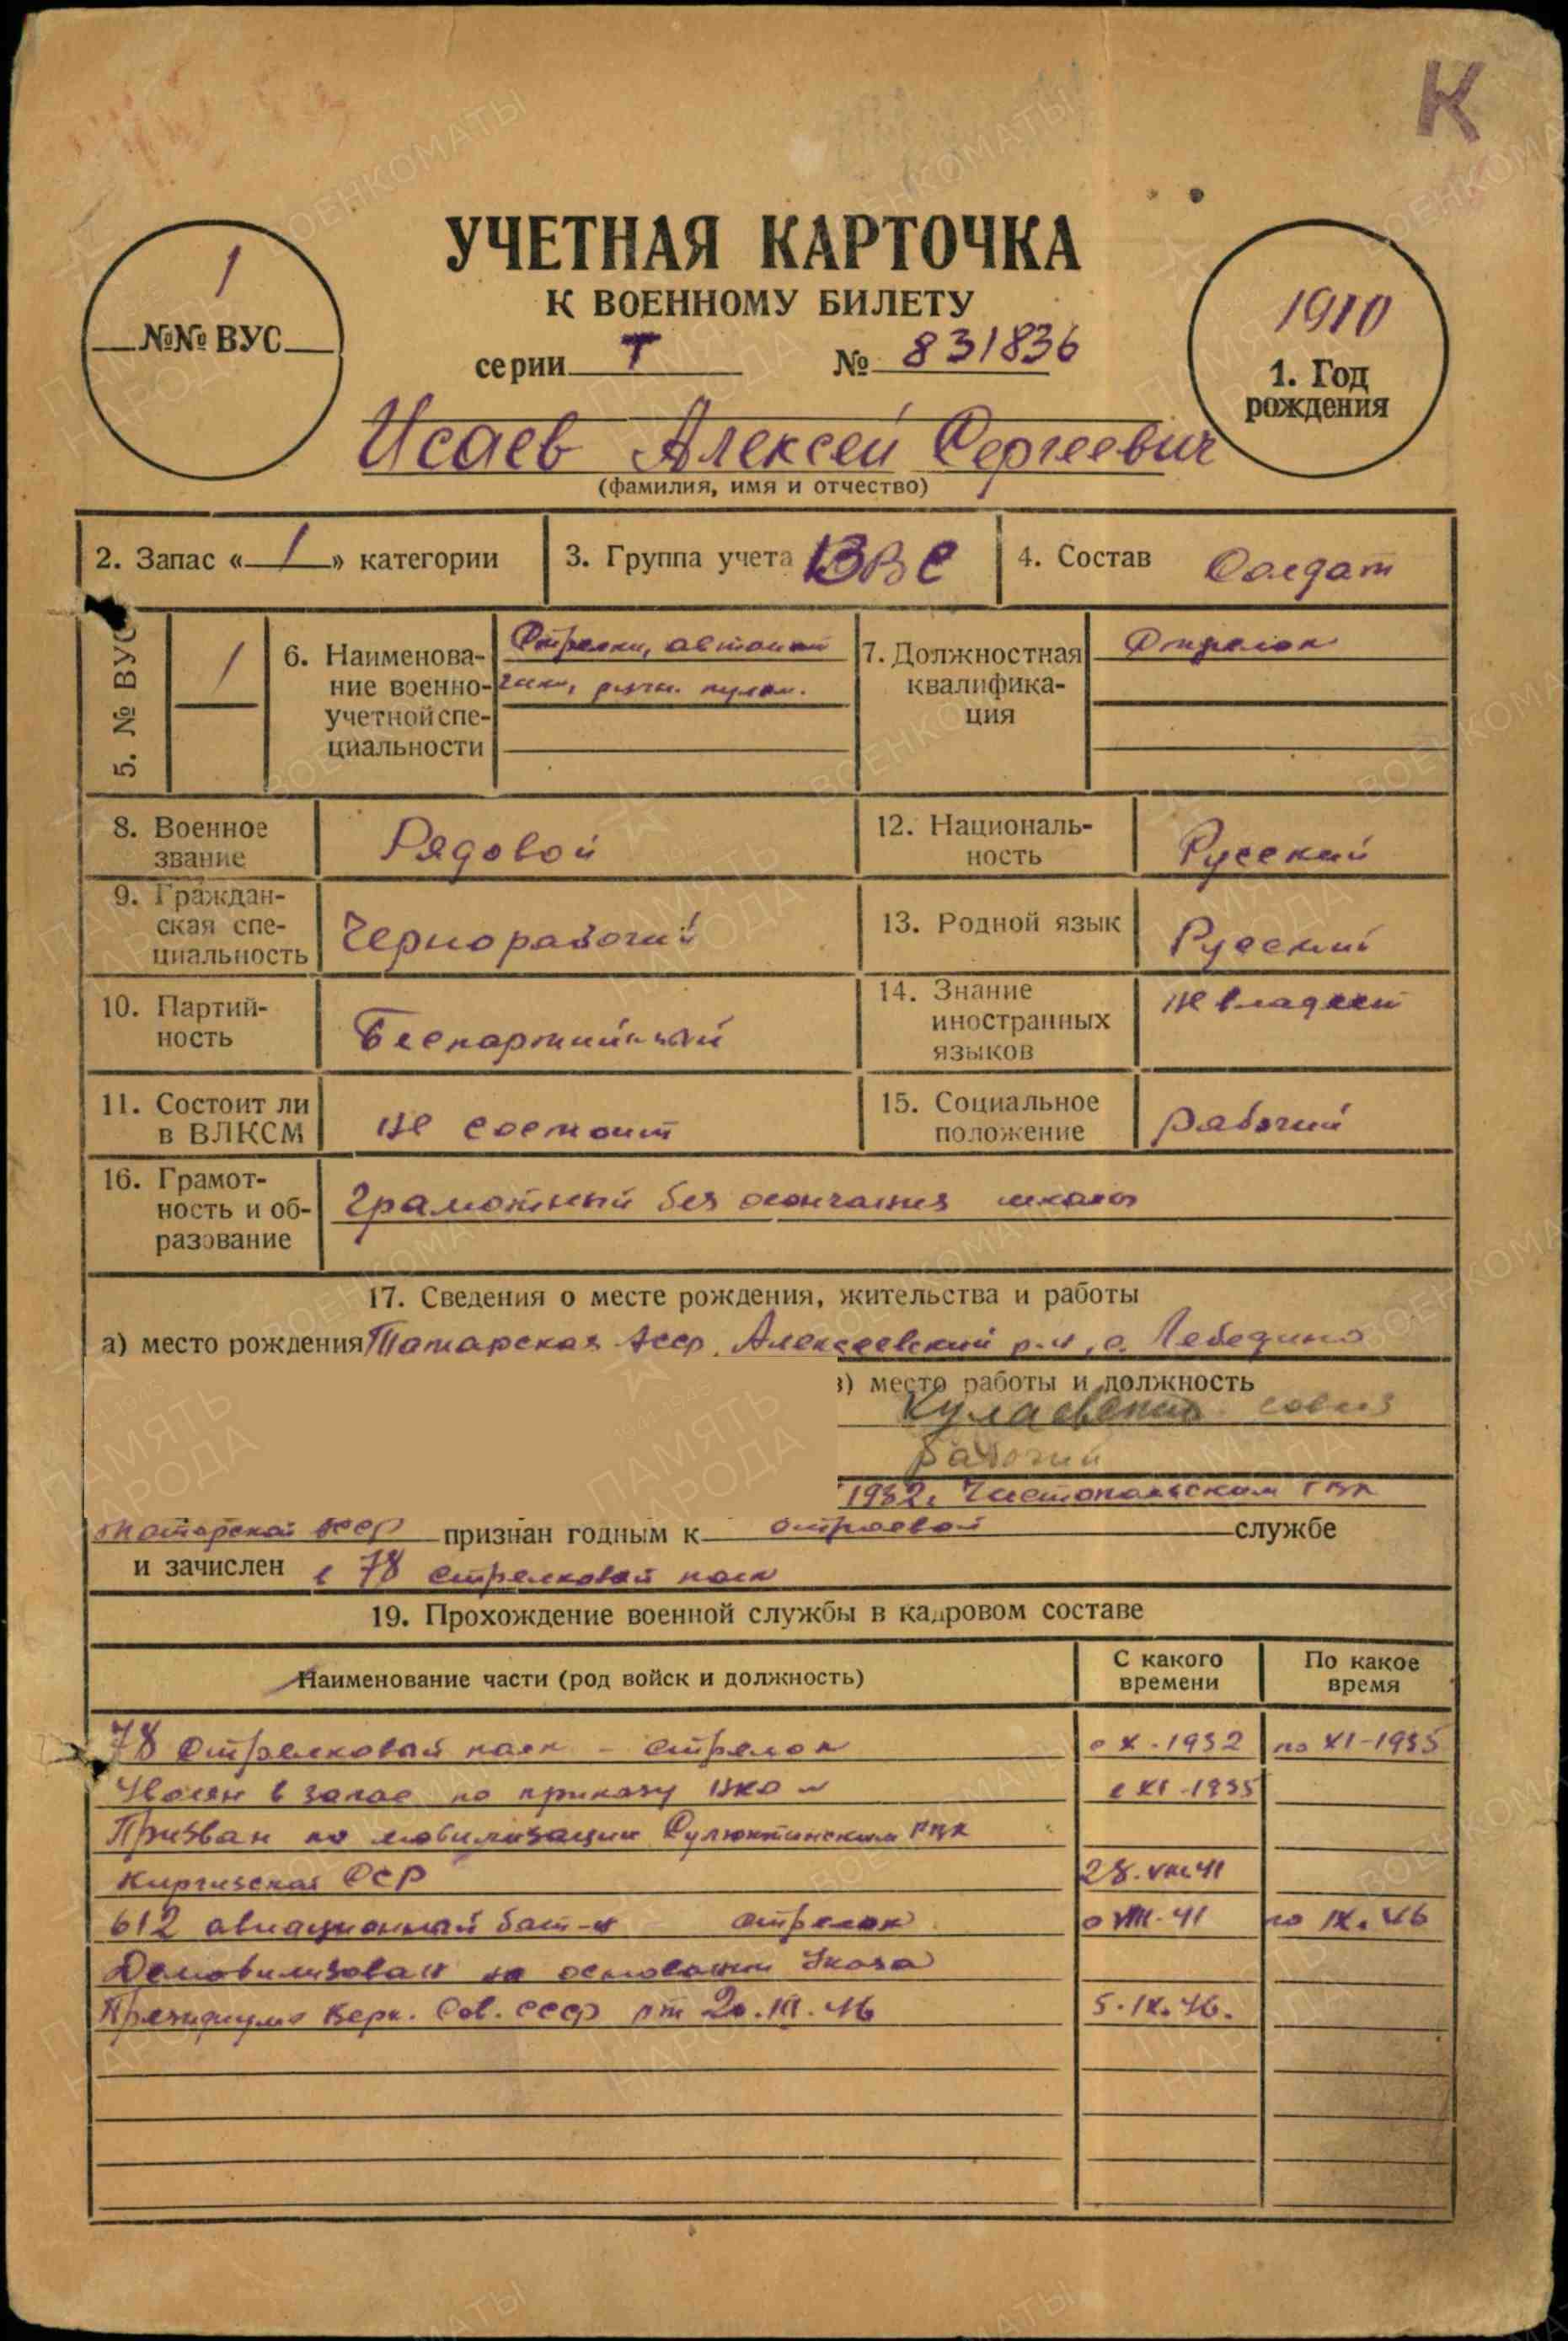 К
УЧЕТНАЯ КАРТОЧКА
К ВОЕННОМУ БИЛЕТУ
серии Т № 831836
1
№№ ВУС
1910
1. Год
рождения
Исаев Алексей Сергеевич
(фамилия, имя и отчество)
2. Запас «1» категории
3. Группа учета ВС
4. Состав Солдат
5. № ВУС
1
6. Наименова-
ние военно-
учетной спе-
циальности
Стрелки, автомат
чики, ручн. пулем.
7. Должностная
квалифика-
ция
Стрелок
8. Военное
звание
Рядовой
12. Националь-
ность
Русский
9. Граждан-
ская спе-
циальность
Чернорабочий
13. Родной язык
Русский
10. Партий-
ность
Беспартийный
14. Знание
иностранных
языков
не владеет
11. Состоит ли
в ВЛКСМ
не состоит
15. Социальное
положение
рабочий
16. Грамот-
ность и об-
разование
Грамотный без окончания школы
17. Сведения о месте рождения, жительства и работы
а) место рождения Татарская АССР, Алексеевский р-н, с. Лебедино
) место работы и должность
Кулаевский
рабочий
1932. Чистопольским ГВК
Татарской АССР признан годным к строевой службе
и зачислен в 78 стрелковый полк
19. Прохождение военной службы в кадровом составе
Наименование части (род войск и должность)
С какого
времени
По какое
время
78 Стрелковый полк - стрелок с X-1932 по XI-1935
Уволен в запас по приказу НКО с XI-1935
Призван по мобилизации Сулюктинским РВК
Киргизская ССР 28.VIII.41
612 авиационный бат-н - стрелок с VIII-41 по IX.46
Демобилизован на основании Указа
Президиума Верх. Сов. СССР от 20.III.46 5.IX.46.
ПАМЯТЬ
НАРОДА
ВОЕНКОМАТЫ